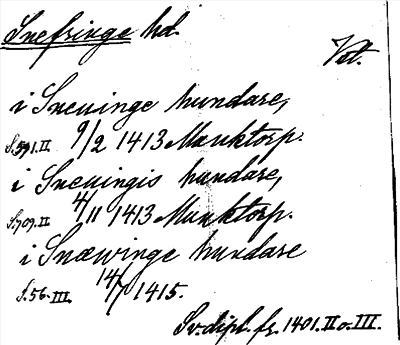 Snefringe hd.
Vstml.
i Sneuinge hundare,
S.591.II 9/2 1413 Munktorp.
i Sneuingis hundare,
S.709.II 4/11 1413 Munktorp.
i Snæwinge hundare
S.56.III. 14/7 1415.
Sv. dipl. fr. 1401. II o. III.